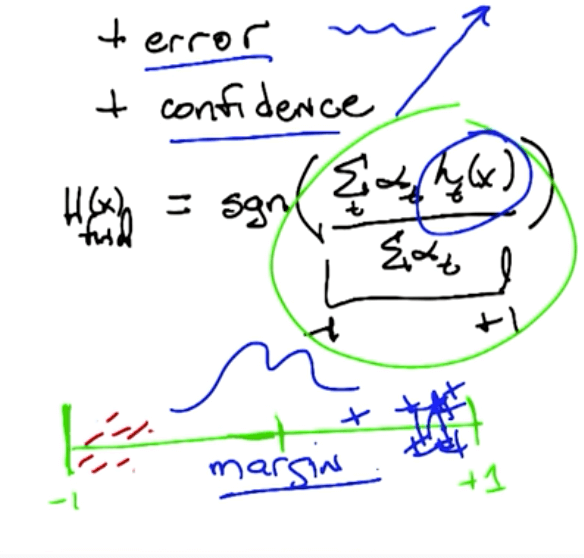 + error
+ confidence
H(x)final = sgn(∑t αt ht(x) / ∑ αt)
-1 +1
margin
-1 +1